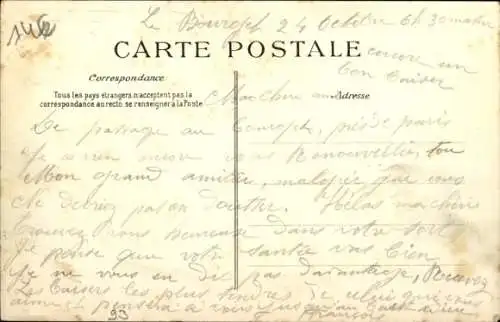 Le Bourget 24 Octobre 6h 30 matin
146
CARTE POSTALE
encore un
bon baiser
Correspondance
Tous les pays étrangers n'acceptent pas la
correspondance au recto, se renseigner à la Poste
Adresse
Ma chère
De passage au Bourget, près de Paris
Je viens encore vous renouveller,
Mon grand amitié, malgré que vous
ne devriez pas en douter. Hélas ma chérie
vous heureuse dans votre sort
Je pense que votre santée vas bien
Je ne vous en dit pas davantage, Recevez
Les baisers les plus tendres de celui qui vous
aime et pensera à vous
François
93